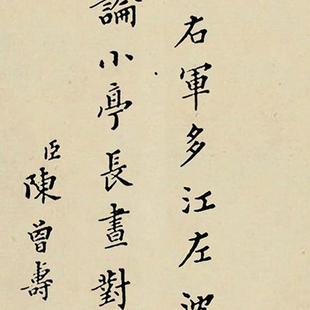 右軍多江左
論小亭長晝對
臣陳曾壽